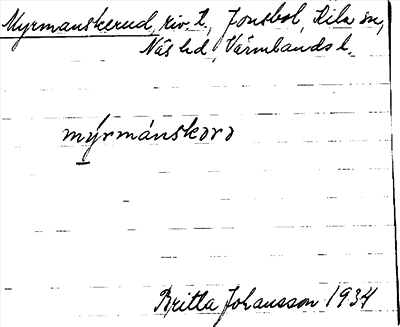 Myrmanskerud, riv. t. Jonsbol, Kila sn,
Näs hd, Värmlands l.
mýrmánskərə
Britta Johansson 1934